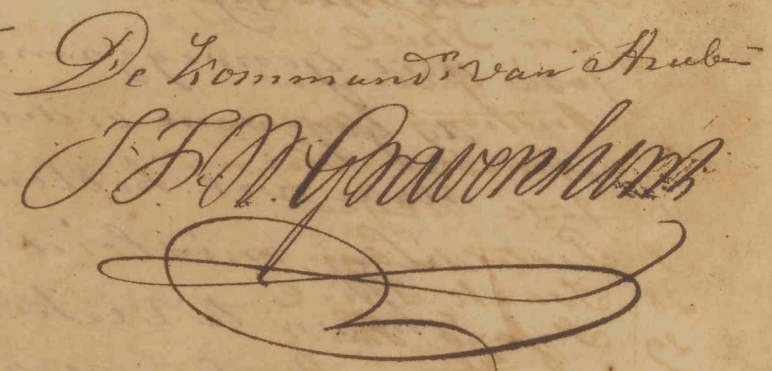 De Kommand^r van Aruba
J F W Gravenhorst